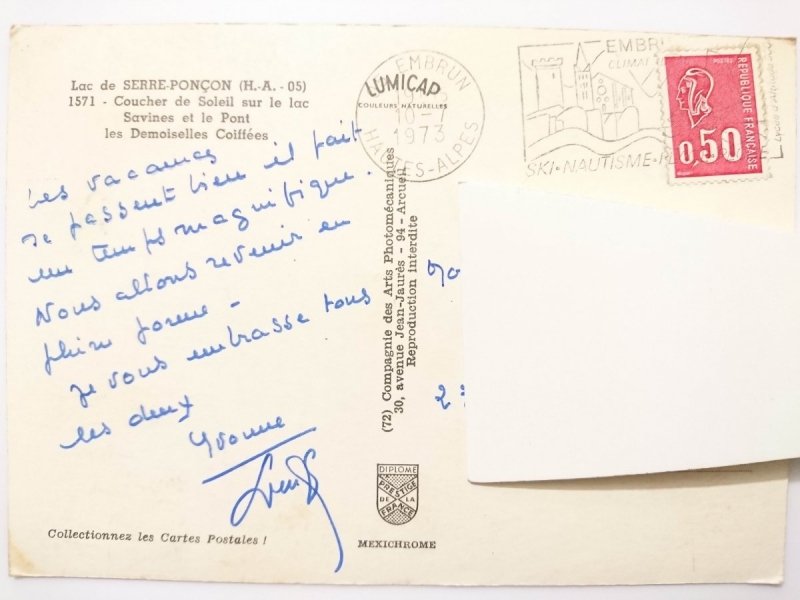 Lac de SERRE-PONÇON (H.-A. - 05)
1571 - Coucher de Soleil sur le lac
Savines et le Pont
les Demoiselles Coiffées
Les vacances
se passent bien il fait
un temps magnifique.
Nous allons revenir en
pleine forme -
Je vous embrasse tous
les deux
Yvonne
Collectionnez les Cartes Postales !
EMBRUN
LUMICAP
COULEURS NATURELLES
1973
HAUTES-ALPES
(72) Compagnie des Arts Photomécaniques
30, avenue Jean-Jaurès - 94 - Arcueil
Reproduction interdite
DIPLOME
PRESTIGE
DE LA
FRANCE
MEXICHROME
EMBR
CLIMAT
SKI·NAUTISME·
REPUBLIQUE FRANÇAISE
0,50